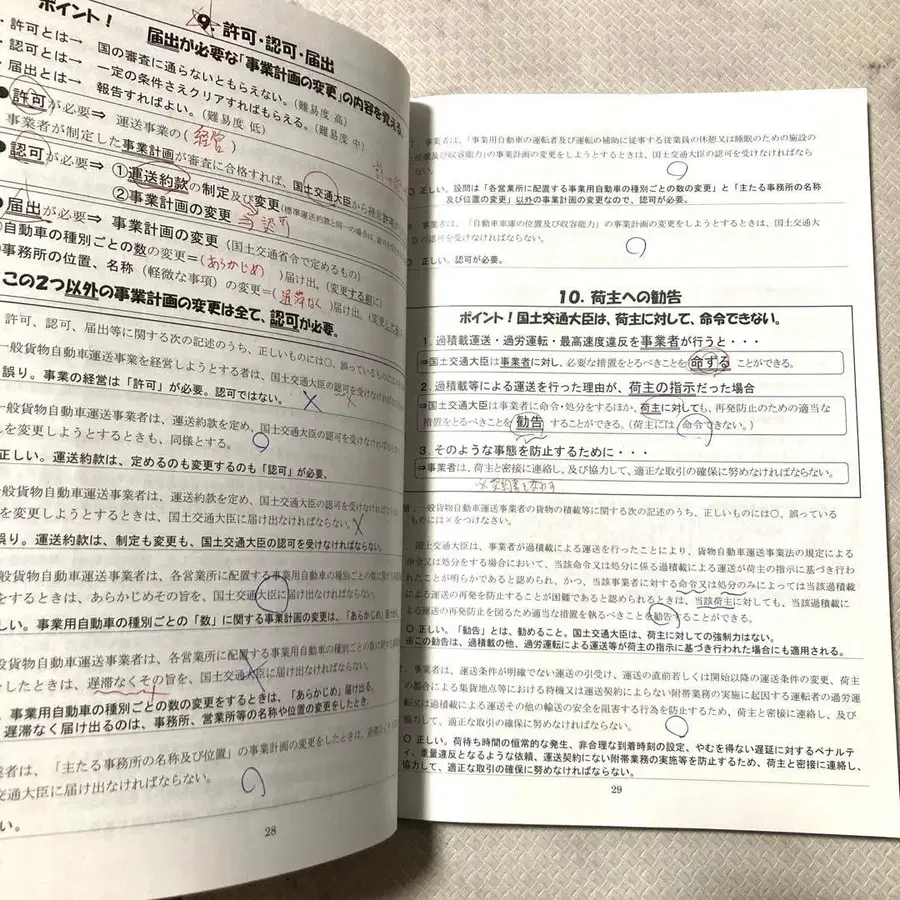 9. 許可・認可・届出
ポイント！
届出が必要な「事業計画の変更」の内容を覚える。
・許可とは→ 国の審査に通らないともらえない。(難易度 高)
・認可とは→ 一定の条件さえクリアすればもらえる。(難易度 中)
・届出とは→ 報告すればよい。(難易度 低)
●許可が必要⇒ 運送事業の(経営)
事業者が制定した事業計画が審査に合格すれば、国土交通大臣から経営許可
●認可が必要⇒ ①運送約款の制定及び変更(標準運送約款と同一の場合は、
②事業計画の変更 当 認可
●届出が必要⇒ 事業計画の変更(国土交通省令で定めるもの)
自動車の種別ごとの数の変更=(あらかじめ)届け出。(変更する前に)
事務所の位置、名称(軽微な事項)の変更=(遅滞なく)届け出。(変更した
この2つ以外の事業計画の変更は全て、認可が必要。
許可、認可、届出等に関する次の記述のうち、正しいものには○、誤っているものに
一般貨物自動車運送事業を経営しようとする者は、国土交通大臣の認可を受けなければ
誤り。事業の経営は「許可」が必要。認可ではない。
一般貨物自動車運送事業者は、運送約款を定め、国土交通大臣の認可を受けなければならない。
を変更しようとするときも、同様とする。
正しい。運送約款は、定めるのも変更するのも「認可」が必要。
一般貨物自動車運送事業者は、運送約款を定め、国土交通大臣の認可を受けなければならない
を変更しようとするときは、国土交通大臣に届け出なければならない。
誤り。運送約款は、制定も変更も、国土交通大臣の認可を受けなければならない。
般貨物自動車運送事業者は、各営業所に配置する事業用自動車の種別ごとの数に関する
をするときは、あらかじめその旨を、国土交通大臣に届け出なければならない。
しい。事業用自動車の種別ごとの「数」に関する事業計画の変更は、「あらかじめ」届け出
貨物自動車運送事業者は、各営業所に配置する事業用自動車の種別ごとの数に関する
をしたときは、遅滞なくその旨を、国土交通大臣に届け出なければならない。
事業用自動車の種別ごとの数の変更をするときは、「あらかじめ」届け出る。
遅滞なく届け出るのは、事務所、営業所等の名称や位置の変更をしたとき。
業者は、「主たる事務所の名称及び位置」の事業計画の変更をしたときは、遅滞なく
交通大臣に届け出なければならない。
い。
28
事業者は、「事業用自動車の運転者及び運転の補助に従事する従業員の休憩又は睡眠のための施設の
位置及び収容能力」の事業計画の変更をしようとするときは、国土交通大臣の認可を受けなければなら
ない。
○ 正しい。設問は「各営業所に配置する事業用自動車の種別ごとの数の変更」と「主たる事務所の名称
及び位置の変更」以外の事業計画の変更なので、認可が必要。
事業者は、「自動車車庫の位置及び収容能力」の事業計画の変更をしようとするときは、国土交通大
の認可を受けなければならない。
○ 正しい。認可が必要。
10. 荷主への勧告
ポイント！国土交通大臣は、荷主に対して、命令できない。
1. 過積載運送・過労運転・最高速度違反を事業者が行うと・・・
⇒国土交通大臣は事業者に対し、必要な措置をとるべきことを 命する ことができる。
2. 過積載等による運送を行った理由が、荷主の指示だった場合
⇒国土交通大臣は事業者に命令・処分をするほか、荷主に対しても、再発防止のための適当な
措置をとるべきことを 勧告 することができる。(荷主には 命令できない。)
3. そのような事態を防止するために・・・
⇒事業者は、荷主と密接に連絡し、及び協力して、適正な取引の確保に努めなければならない。
問：一般貨物自動車運送事業者の貨物の積載等に関する次の記述のうち、正しいものには○、誤っている
ものには×をつけなさい。
国土交通大臣は、事業者が過積載による運送を行ったことにより、貨物自動車運送事業法の規定による
命令又は処分をする場合において、当該命令又は処分に係る過積載による運送が荷主の指示に基づき行わ
れたことが明らかであると認められ、かつ、当該事業者に対する命令又は処分のみによっては当該過積載
による運送の再発を防止することが困難であると認められるときは、当該荷主に対しても、当該過積載に
よる運送の再発防止を図るため適当な措置を執るべきことを勧告することができる。
○ 正しい。「勧告」とは、勧めること。国土交通大臣は、荷主に対しての強制力はない。
※この勧告は、過積載の他、過労運転による運送等が荷主の指示に基づき行われた場合にも適用される。
事業者は、運送条件が明確でない運送の引受け、運送の直前若しくは開始以降の運送条件の変更、荷主
の都合による集貨地点等における待機又は運送契約によらない附帯業務の実施に起因する運転者の過労運
転又は過積載による運送その他の輸送の安全を阻害する行為を防止するため、荷主と密接に連絡し、及び
協力して、適正な取引の確保に努めなければならない。
○ 正しい。荷待ち時間の恒常的な発生、非合理な到着時刻の設定、やむを得ない遅延に対するペナルテ
ィ、重量違反となるような依頼、運送契約にない附帯業務の実施等を防止するため、荷主と密接に連絡し、
協力して、適正な取引の確保に努めなければならない。
29